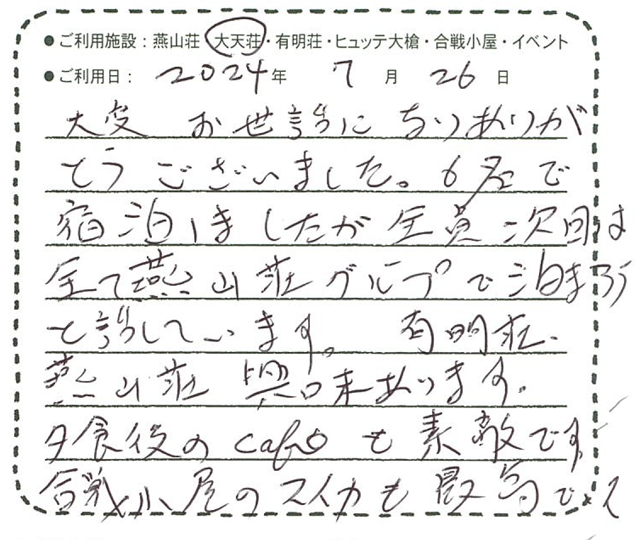 ●ご利用施設：燕山荘・大天荘・有明荘・ヒュッテ大槍・合戦小屋・イベント
●ご利用日：2024年 7月 26日
大変 お世話に なりありが
とう ございました。6名で
宿泊しましたが 全員 次回は
全て燕山荘グループで泊まろう
と話しています。 有明荘、
燕山荘 興味あります。
夕食後の cafe も 素敵です。
合戦小屋のスイカも 最高でした